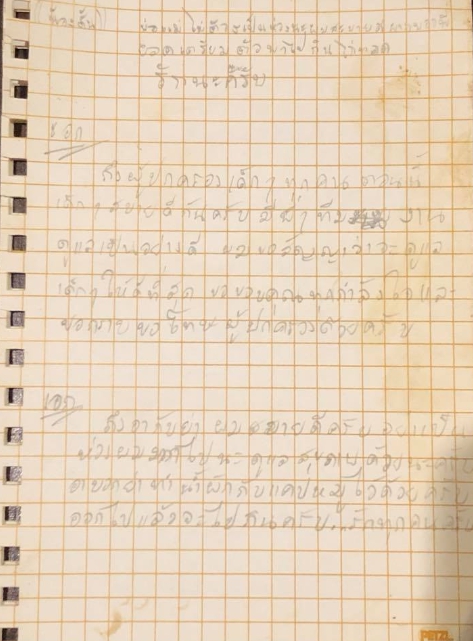 (น้องตั้น) พ่อแม่ไม่ต้องเป็นห่วงนะผมสบายดี
ยอดเตรียมตัวพาไปกินไก่ทอด
รักนะครับ
โค้ชเอก
ถึงผู้ปกครองเด็กๆทุกคน ตอนนี้
เด็กๆสบายดีกันครับ มีพี่ๆทีมงาน
ดูแลเป็นอย่างดี ผมขอสัญญาว่าจะดูแล
เด็กๆให้ดีที่สุด ขอขอบคุณทุกกำลังใจและ
ขอกราบขอโทษผู้ปกครองด้วยครับ
เอก
ถึงอากับย่า ผมสบายดีครับ อย่าเป็น
ห่วงผมมากไปนะ ดูแลสุขภาพด้วยนะครับ
อาบอกย่าทำน้ำผักกับแคปหมูไว้ด้วยครับ
ออกไปแล้วจะไปกินครับ...รักทุกคนครับ
PETZL